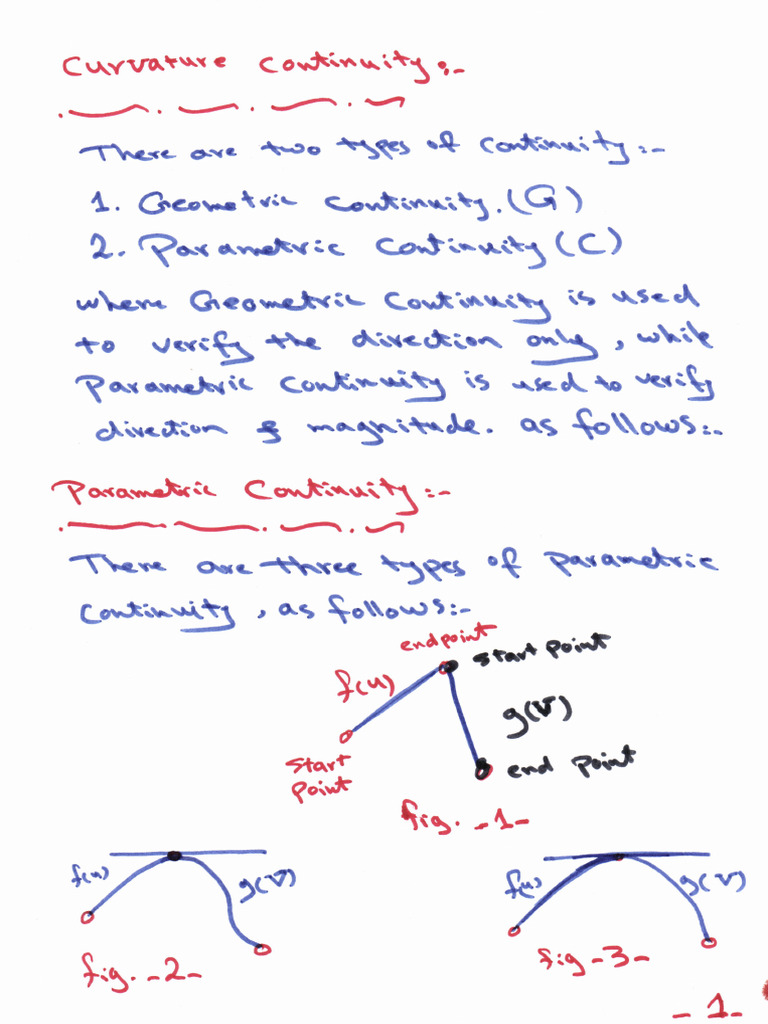 Curvature Continuity:-
There are two types of continuity:-
1. Geometric Continuity. (G)
2. Parametric Continuity (C)
where Geometric Continuity is used
to verify the direction only, while
Parametric Continuity is used to verify
direction & magnitude. as follows:-
Parametric Continuity:-
There are three types of parametric
Continuity, as follows:-
endpoint
start point
f(u)
g(V)
start
point
end point
fig. -1-
f(u)
g(V)
f(u)
g(V)
fig. -2-
fig -3-
-1-